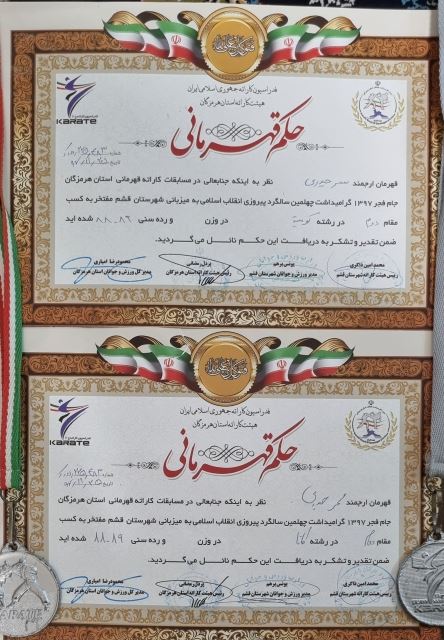 فدراسیون کاراته جمهوری اسلامی ایران
هیئت کاراته استان هرمزگان
KARATE
حکم قهرمانی
قهرمان ارجمند نظر به اینکه جنابعالی در مسابقات کاراته قهرمانی استان هرمزگان
جام فجر ۱۳۹۷ گرامیداشت چهلمین سالگرد پیروزی انقلاب اسلامی به میزبانی شهرستان قشم مفتخر به کسب
مقام دوم در رشته کومیته در وزن و رده سنی ۸۸.۸۶ شده اید
ضمن تقدیر و تشکر به دریافت این حکم نائل می‌گردید.
محمد امین ذاکری
رئیس هیئت کاراته شهرستان قشم
یونس پرهیر
مدیر ورزش و جوانان شهرستان قشم
رئیس هیئت کاراته استان هرمزگان
محمودرضا امباری
مدیر کل ورزش و جوانان استان هرمزگان
فدراسیون کاراته جمهوری اسلامی ایران
هیئت کاراته استان هرمزگان
KARATE
حکم قهرمانی
قهرمان ارجمند نظر به اینکه جنابعالی در مسابقات کاراته قهرمانی استان هرمزگان
جام فجر ۱۳۹۷ گرامیداشت چهلمین سالگرد پیروزی انقلاب اسلامی به میزبانی شهرستان قشم مفتخر به کسب
مقام در رشته کاتا در وزن و رده سنی ۸۸.۸۹ شده اید
ضمن تقدیر و تشکر به دریافت این حکم نائل می‌گردید.
محمد امین ذاکری
رئیس هیئت کاراته شهرستان قشم
مدیر ورزش و جوانان شهرستان قشم
رئیس هیئت کاراته استان هرمزگان
محمودرضا امباری
مدیر کل ورزش و جوانان استان هرمزگان